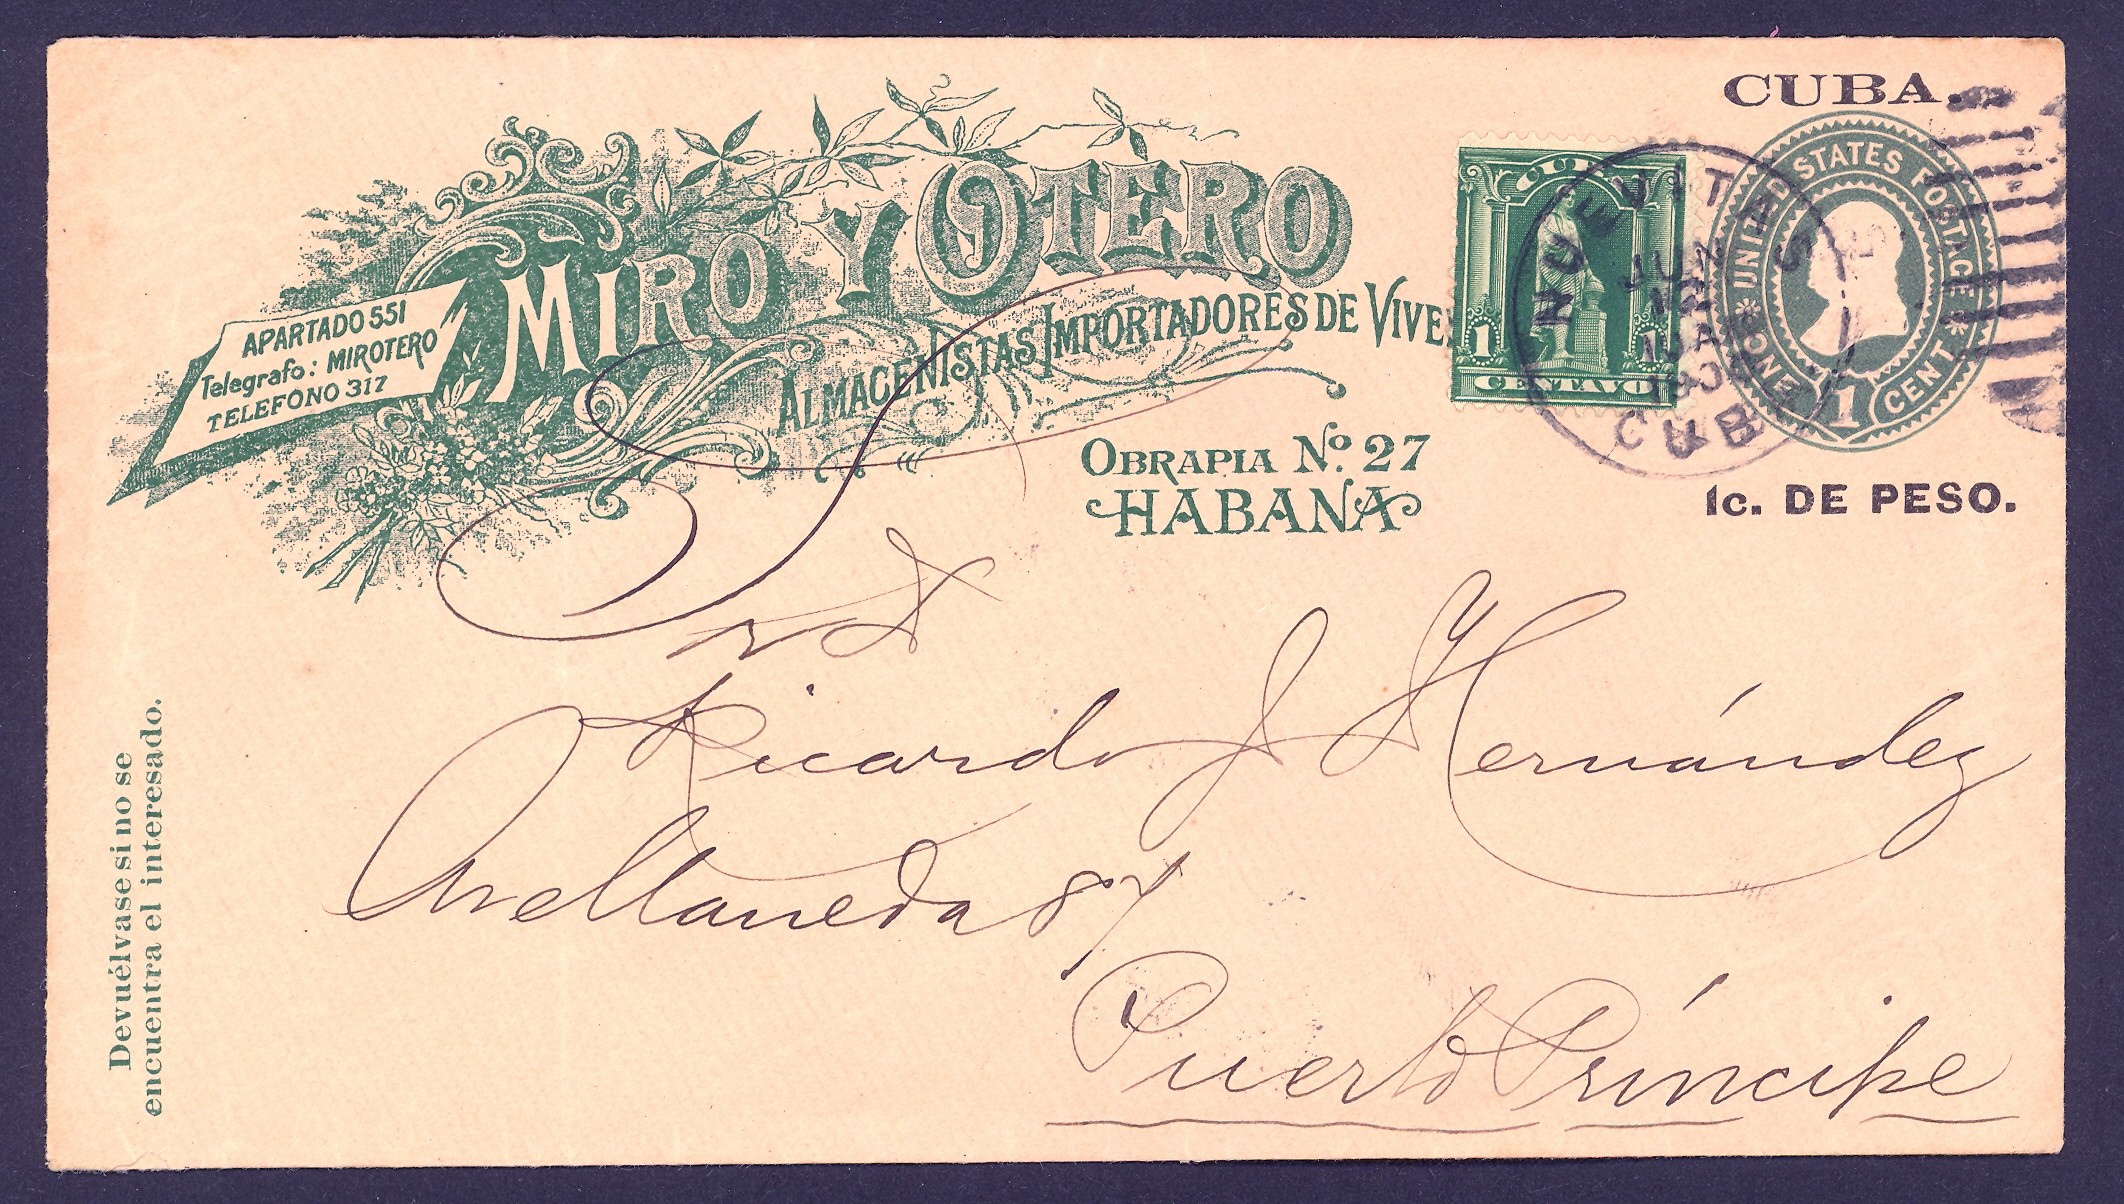 CUBA.
MIRO Y OTERO
ALMACENISTAS IMPORTADORES DE VIVE
APARTADO 551
Telegrafo: MIROTERO
TELEFONO 317
OBRAPIA No. 27
HABANA
CU
1
CENTAVO
NUEVITAS
JUN
CUBA
UNITED STATES POSTAGE
1 CENT
1c. DE PESO.
Sr D
Ricardo J Hernández
Avellaneda 87
Puerto Príncipe
Devuélvase si no se
encuentra el interesado.